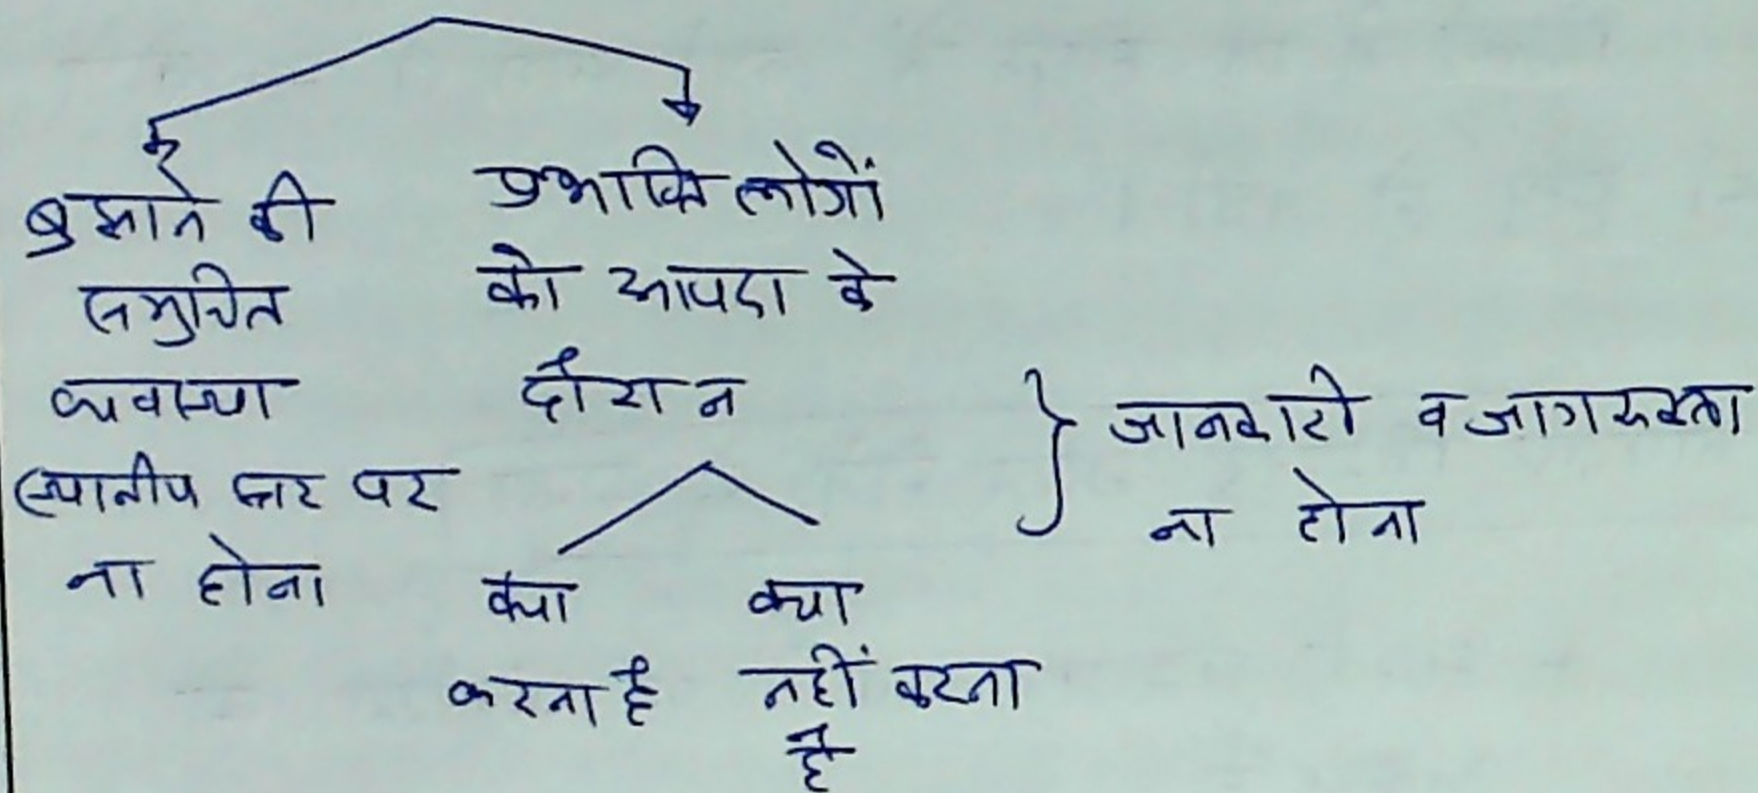 बुझाने की
समुचित
व्यवस्था
स्थानीय स्तर पर
ना होना
प्रभावित लोगों
को आपदा के
दौरान
क्या
करना है
क्या
नहीं करना
है
जानकारी व जागरूकता
ना होना